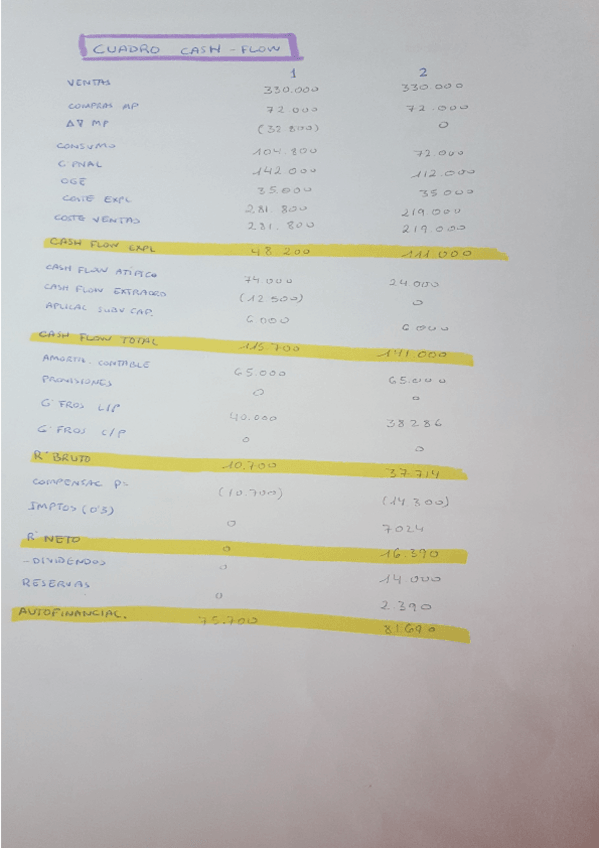 CUADRO CASH-FLOW
1 2
VENTAS 330.000 330.000
COMPRAS MP 72.000 72.000
Δ∇ MP (32.800) 0
CONSUMO 104.800 72.000
G PNAL 142.000 112.000
OGE 35.000 35.000
COSTE EXPL 281.800 219.000
COSTE VENTAS 281.800 219.000
CASH FLOW EXPL 48.200 111.000
CASH FLOW ATÍPICO 74.000 24.000
CASH FLOW EXTRAORD (12.500) 0
APLICAC SUBV CAP. 6.000 6.000
CASH FLOW TOTAL 115.700 141.000
AMORTIZ. CONTABLE 65.000 65.000
PROVISIONES 0 0
Gº FROS L/P 40.000 38.286
Gº FROS C/P 0 0
Rº BRUTO 10.700 37.714
COMPENSAC Pº (10.700) (14.300)
IMPTOS (0'3) 0 7024
Rº NETO 0 16.390
-DIVIDENDOS 0 14.000
RESERVAS 0 2.390
AUTOFINANCIAC. 75.700 81.690